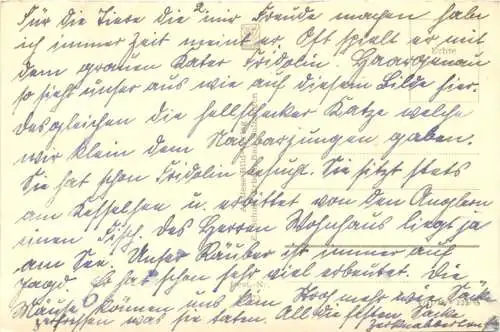 Für die Tiere die 2 mir Freude machen habe
ich immer Zeit meint er. Oft spielt er mit
dem grauen Kater Fridolin. Haargenau
so sieht unser aus wie auf diesem Bilde hier.
Desgleichen die hellschecker Katze welche
wir klein dem Nachbarjungen gaben.
Sie hat schon Fridolin besucht. Sie sitzt stets
am u. erbittet von den Anglern
einen Fisch. Des Herren Wohnhaus liegt ja
am See. Unser Räuber ist immer auf
Jagd. Er hat schon sehr viel erbeutet. Die
Mäuse können uns kein mehr wie Säcke
zerfressen was sie taten. All die festen Säcke
Echte